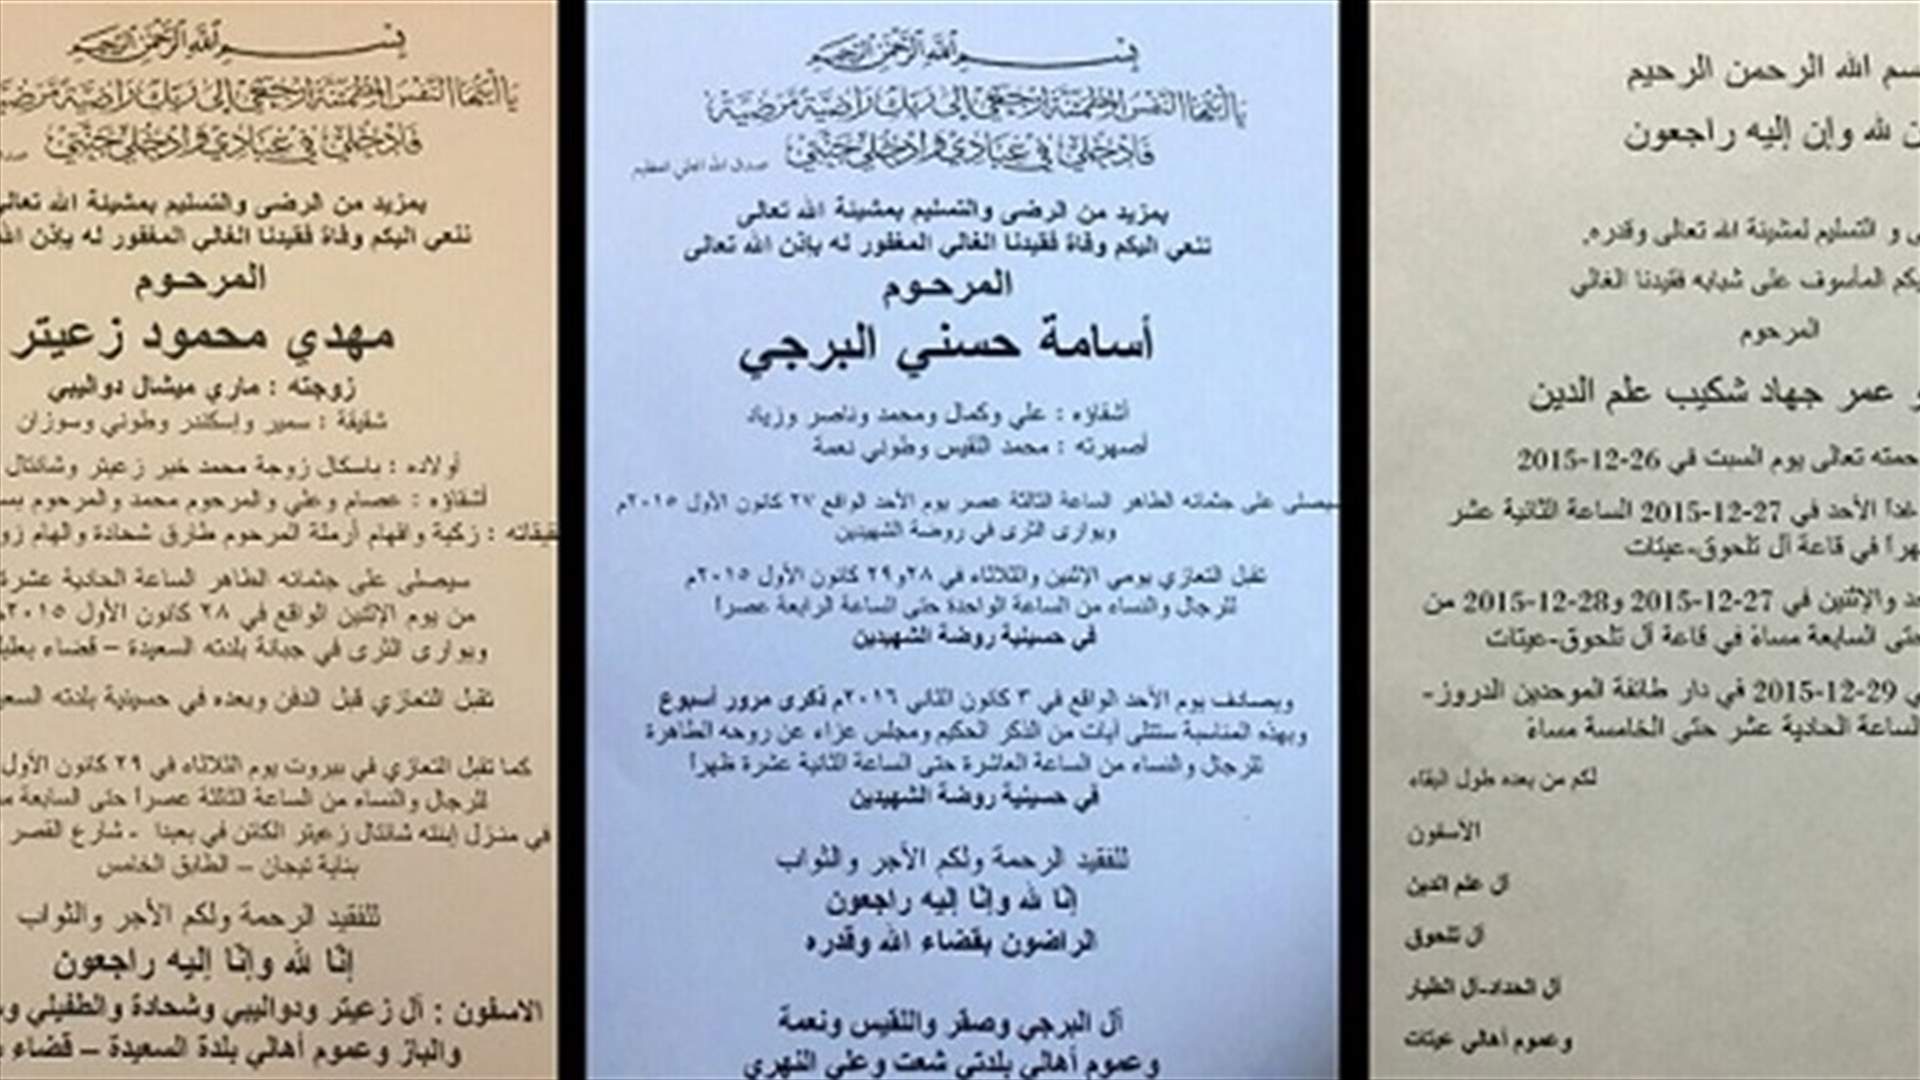 بسم الله الرحمن الرحيم
يا أيتها النفس المطمئنة ارجعي إلى ربك راضية مرضية
فادخلي في عبادي وادخلي جنتي
بمزيد من الرضى والتسليم بمشيئة الله تعالى
ننعي اليكم وفاة فقيدنا الغالي المغفور له بإذن الله
المرحوم
مهدي محمود زعيتر
زوجته : ماري ميشال دواليبي
شقيقة : سمير وإسكندر وطوني وسوزان
أولاده : باسكال زوجة محمد خير زعيتر وشانتال
أشقاؤه : عصام وعلي والمرحوم محمد والمرحوم
زكية وافهام أرملة المرحوم طارق شحادة والهام
سيصلى على جثمانه الطاهر الساعة الحادية عشرة
من يوم الإثنين الواقع في ٢٨ كانون الأول ٢٠١٥م
ويوارى الثرى في جبانة بلدته السعيدة – قضاء
تقبل التعازي قبل الدفن وبعده في حسينية بلدته
كما تقبل التعازي في بيروت يوم الثلاثاء في ٢٩ كانون الأول
للرجال والنساء من الساعة الثالثة عصراً حتى السابعة
في منزل إبنته شانتال زعيتر الكائن في بعبدا - شارع القصر
بناية تيجان – الطابق الخامس
للفقيد الرحمة ولكم الأجر والثواب
إنّا لله وإنّا إليه راجعون
الاسفون : آل زعيتر ودواليبي وشحادة والطفيلي
والباز وعموم أهالي بلدة السعيدة – قضاء
بسم الله الرحمن الرحيم
يا أيتها النفس المطمئنة ارجعي إلى ربك راضية مرضية
فادخلي في عبادي وادخلي جنتي صدق الله العلي العظيم
بمزيد من الرضى والتسليم بمشيئة الله تعالى
ننعي اليكم وفاة فقيدنا الغالي المغفور له بإذن الله تعالى
المرحوم
أسامة حسني البرجي
أشقاؤه : علي وكمال ومحمد وناصر وزياد
أصهرته : محمد النقيس وطوني نعمة
سيصلى على جثمانه الطاهر الساعة الثالثة عصر يوم الأحد الواقع ٢٧ كانون الأول ٢٠١٥م
ويوارى الثرى في روضة الشهيدين
تقبل التعازي يومي الإثنين والثلاثاء في ٢٨و٢٩ كانون الأول ٢٠١٥م
للرجال والنساء من الساعة الواحدة حتى الساعة الرابعة عصراً
في حسينية روضة الشهيدين
ويصادف يوم الأحد الواقع في ٣ كانون الثاني ٢٠١٦م ذكرى مرور أسبوع
وبهذه المناسبة ستتلى آيات من الذكر الحكيم ومجلس عزاء عن روحه الطاهرة
للرجال والنساء من الساعة العاشرة حتى الساعة الثانية عشرة ظهراً
في حسينية روضة الشهيدين
للفقيد الرحمة ولكم الأجر والثواب
إنّا لله وإنّا إليه راجعون
الراضون بقضاء الله وقدره
آل البرجي وصقر والنقيس ونعمة
وعموم أهالي بلدتي شعت وعلي النهري
سم الله الرحمن الرحيم
لله وإن إليه راجعون
و التسليم لمشيئة الله تعالى وقدره.
المأسوف على شبابه فقيدنا الغالي
المرحوم
عمر جهاد شكيب علم الدين
تعالى يوم السبت في 26-12-2015
غداً الأحد في 27-12-2015 الساعة الثانية عشر
في قاعة آل تلحوق-عيتات
والإثنين في 27-12-2015 و28-12-2015 من
السابعة مساءً في قاعة آل تلحوق-عيتات
29-12-2015 في دار طائفة الموحدين الدروز-
الساعة الحادية عشر حتى الخامسة مساءً
لكم من بعده طول البقاء
الآسفون
آل علم الدين
آل تلحوق
آل الحداد-آل الطيار
وعموم أهالي عيتات